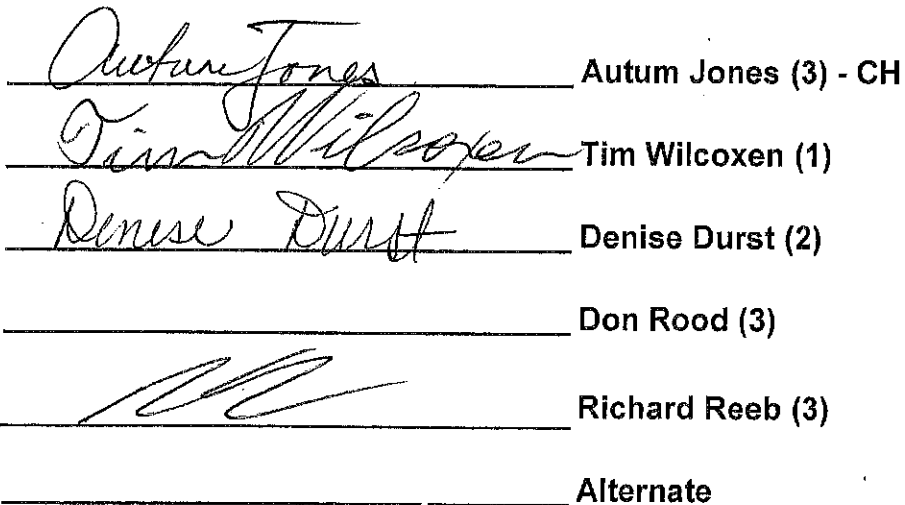 Autum Jones Autum Jones (3) - CH
Tim Wilcoxen Tim Wilcoxen (1)
Denise Durst Denise Durst (2)
Don Rood (3)
Richard Reeb (3)
Alternate